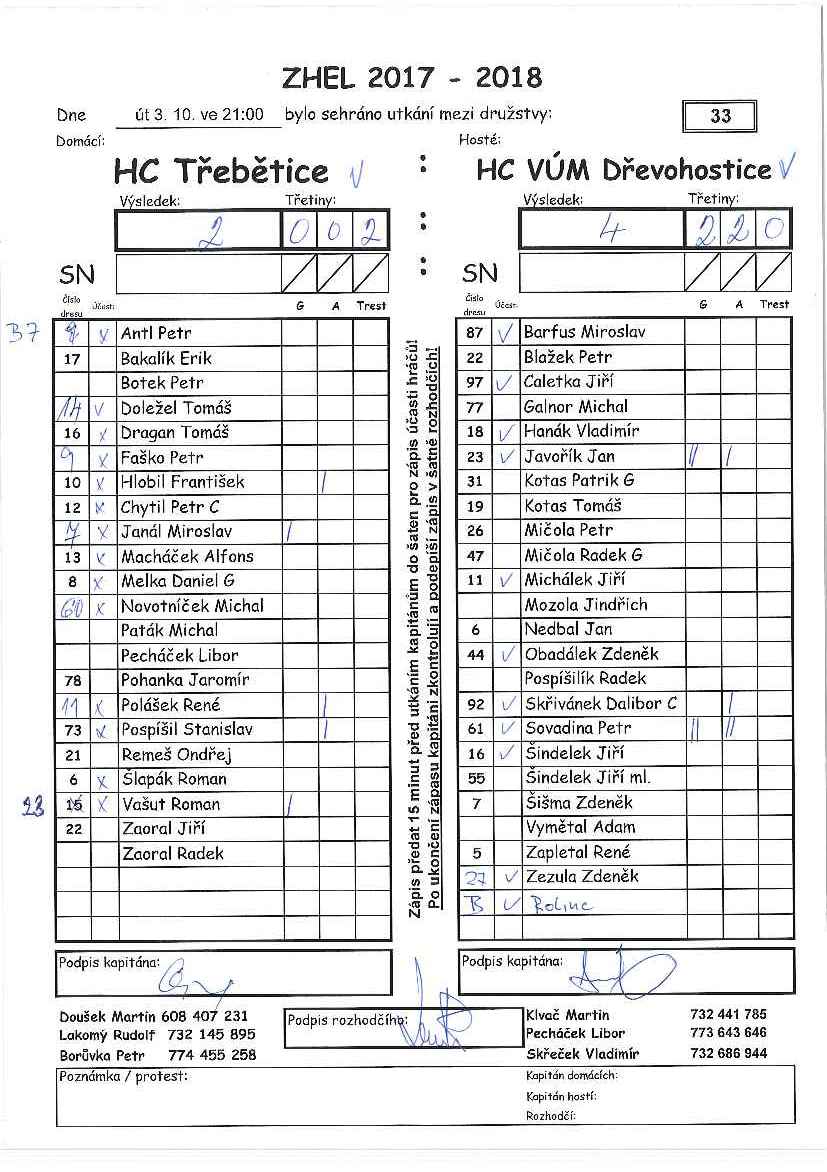 ZHEL 2017 - 2018
Dne út 3. 10. ve 21:00 bylo sehráno utkání mezi družstvy: 33
Domácí: Hosté:
HC Třebětice : HC VÚM Dřevohostice
Výsledek: Třetiny: Výsledek: Třetiny:
2 0 0 2 : 4 2 2 0
SN : SN
číslo dresu Účast: G A Trest číslo dresu Účast: G A Trest
37 Antl Petr
17 Bakalík Erik
Botek Petr
14 Doležel Tomáš
16 Dragan Tomáš
9 Faško Petr
10 Hlobil František
12 Chytil Petr C
7 Janál Miroslav
13 Macháček Alfons
8 Melka Daniel G
60 Novotníček Michal
Paták Michal
Pecháček Libor
78 Pohanka Jaromír
11 Polášek René
73 Pospíšil Stanislav
21 Remeš Ondřej
6 Šlapák Roman
23 15 Vašut Roman
22 Zaoral Jiří
Zaoral Radek
Zápis předat 15 minut před utkáním kapitánům do šaten pro zápis účasti hráčů!
Po ukončení zápasu kapitáni zkontrolují a podepíší zápis v šatně rozhodčích!
87 Barfus Miroslav
22 Blažek Petr
97 Caletka Jiří
77 Galnor Michal
18 Hanák Vladimír
23 Javořík Jan
31 Kotas Patrik G
19 Kotas Tomáš
26 Mičola Petr
47 Mičola Radek G
11 Michálek Jiří
Mozola Jindřich
6 Nedbal Jan
44 Obadálek Zdeněk
Pospíšilík Radek
92 Skřivánek Dalibor C
61 Sovadina Petr
16 Šindelek Jiří
55 Šindelek Jiří ml.
7 Šišma Zdeněk
Vymětal Adam
5 Zapletal René
27 Zezula Zdeněk
Podpis kapitána: Podpis kapitána:
Doušek Martin 608 407 231
Lakomý Rudolf 732 145 895
Borůvka Petr 774 455 258
Podpis rozhodčího:
Klvač Martin 732 441 785
Pecháček Libor 773 643 646
Skřeček Vladimír 732 686 944
Poznámka / protest:
Kapitán domácích:
Kapitán hostí:
Rozhodčí: